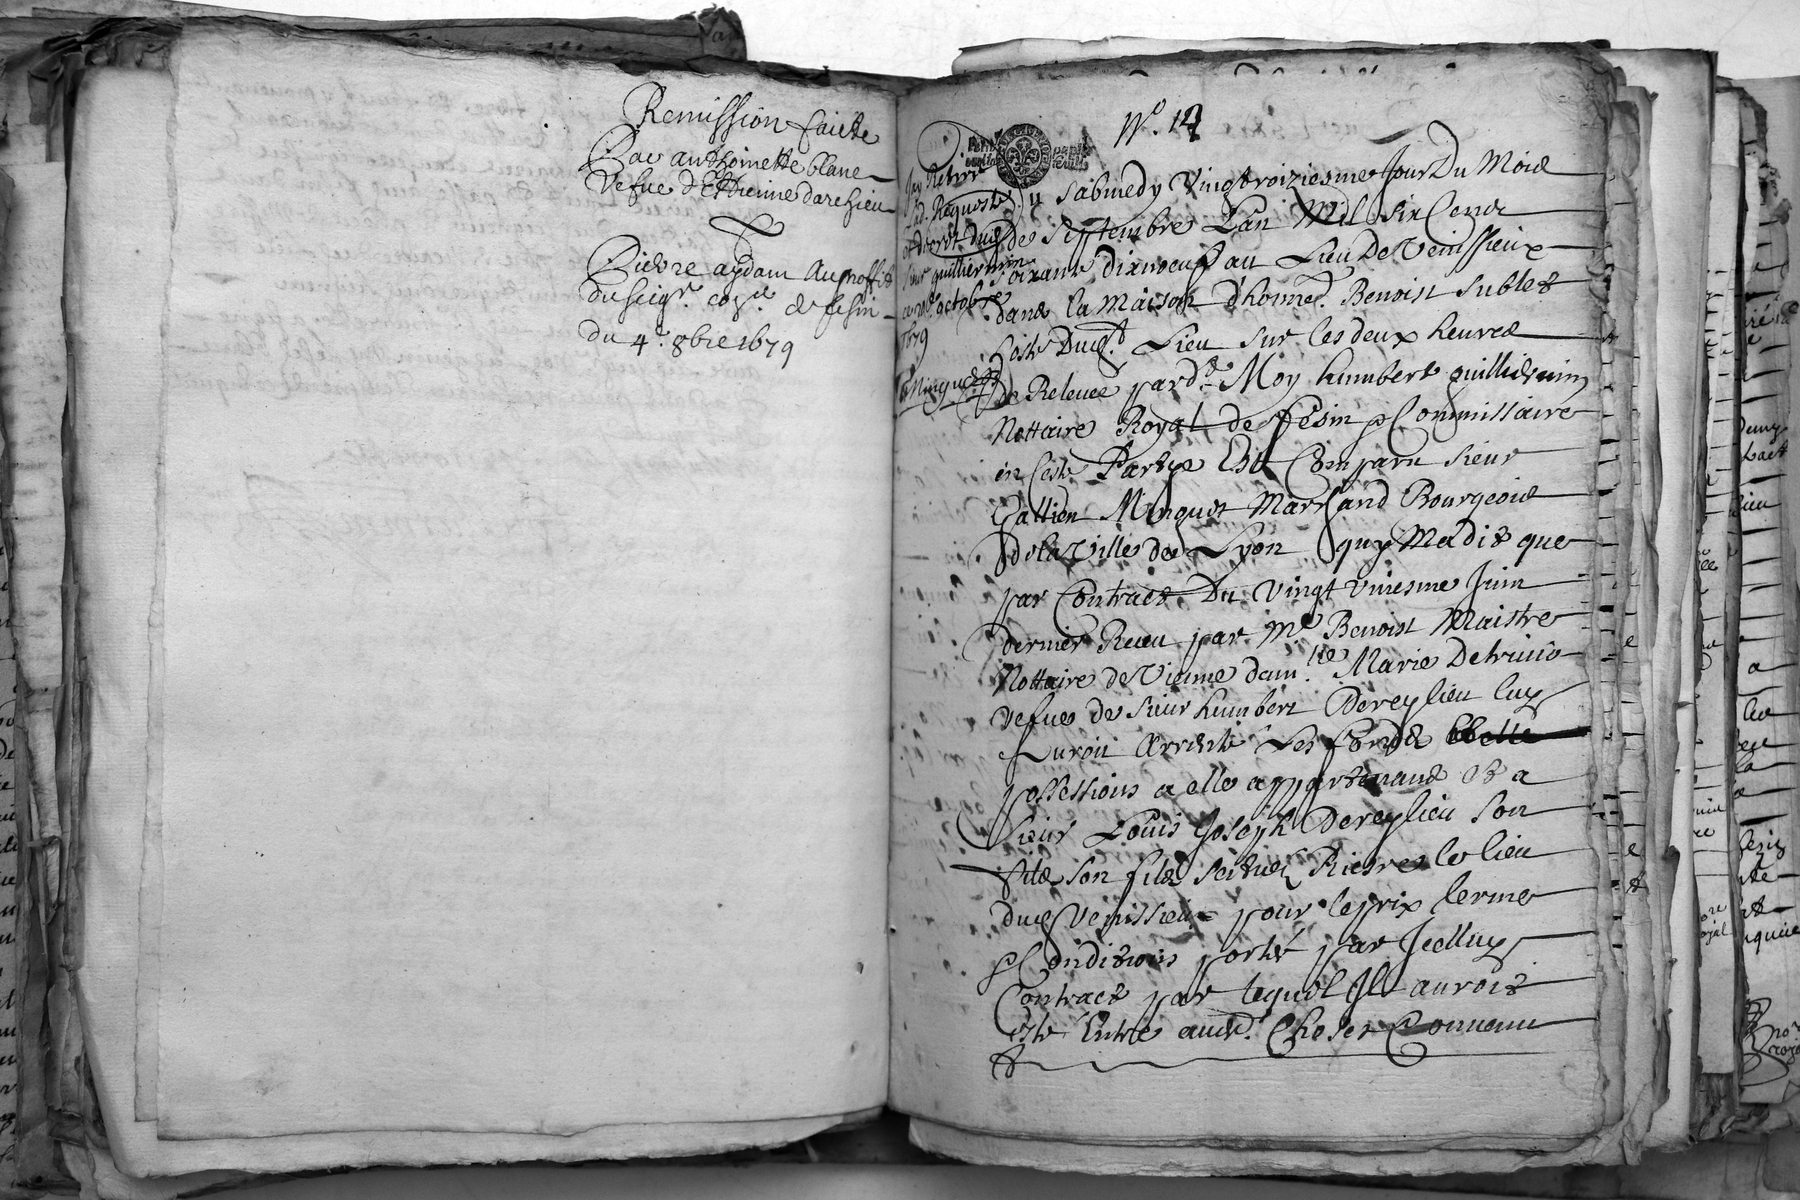 Remission faicte
Par anthoinette blanc
vefue d'Estienne darchieu
Et
Pierre aydam Au proffit
du seigr. cogr. de fesin
du 4e. 8bre 1679
No. 14
Jay Retiré
Requeste
quillermin
octobre
1679
Minguet
Du sabmedy Vingtroiziesme Jour Du Mois
de Septembre L'an Mil six Cens
soixante dixneuf au Lieu De Venissieux
dans la Maison d'honne. Benoist Sublet
hoste Dud. Lieu sur les deux heures
de Relevée pard. Moy humbert quillermin
Nottaire Royal de fesin & Commissaire
en Ceste Partye Est Comparu sieur
Gattien Minguet Marchand Bourgeois
de la Ville de Lyon quy Ma dit que
par Contract Du Vingt uniesme Juin
dernier Receu par Me Benoist Maistre
Nottaire de Vienne damlle Marie
vefue de sieur humbert Dereylieu luy
auroit Arrenté Les fonds
possessions a elle appartenans et a
sieur Louis Joseph Dereylieu son
fils son fils scitués Riesre le lieu
dud Venissieux pour le prix terme
& Conditions portés par Jcelluy
Contract par lequel Jl auroit
esté Entre autr. Choses Convenu